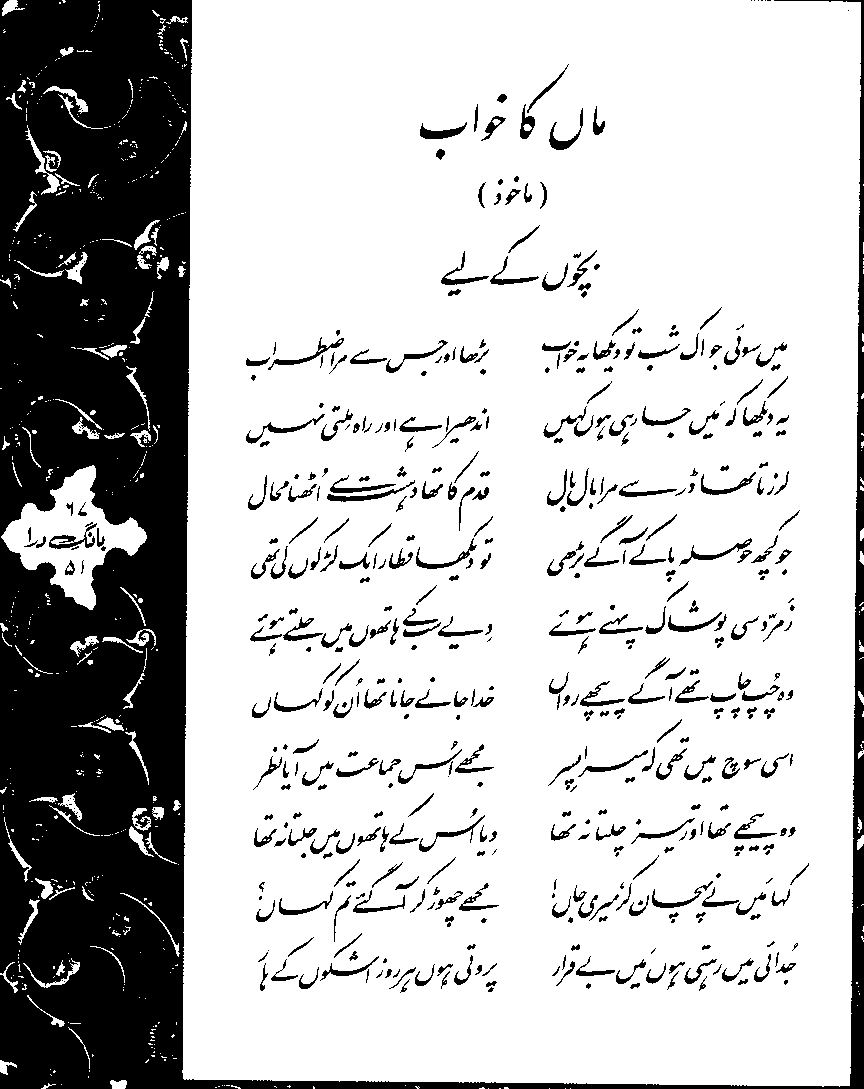 ماں کا خواب
(ماخوذ)
بچّوں کے لیے
میں سوئی جو اک شب تو دیکھا یہ خواب بڑھا اور جس سے مرا اضطراب
یہ دیکھا کہ مَیں جا رہی ہوں کہیں اندھیرا ہے اور راہ ملتی نہیں
لرزتا تھا ڈر سے مرا بال بال قدم کا تھا دہشت سے اُٹھنا محال
جو کچھ حوصلہ پا کے آگے بڑھی تو دیکھا قطار ایک لڑکوں کی تھی
زَمرّد سی پوشاک پہنے ہوئے دِیے سب کے ہاتھوں میں جلتے ہوئے
وہ چُپ چاپ تھے آگے پیچھے رواں خدا جانے جانا تھا اُن کو کہاں
اسی سوچ میں تھی کہ میرا پِسر مجھے اُس جماعت میں آیا نظر
وہ پیچھے تھا اور تیز چلتا نہ تھا دِیا اُس کے ہاتھوں میں جلتا نہ تھا
کہا مَیں نے پہچان کر، میری جاں! مجھے چھوڑ کر آ گئے تم کہاں؟
جُدائی میں رہتی ہوں مَیں بے قرار پروتی ہوں ہر روز اشکوں کے ہا
۶۷
بانگِ درا
۵۱